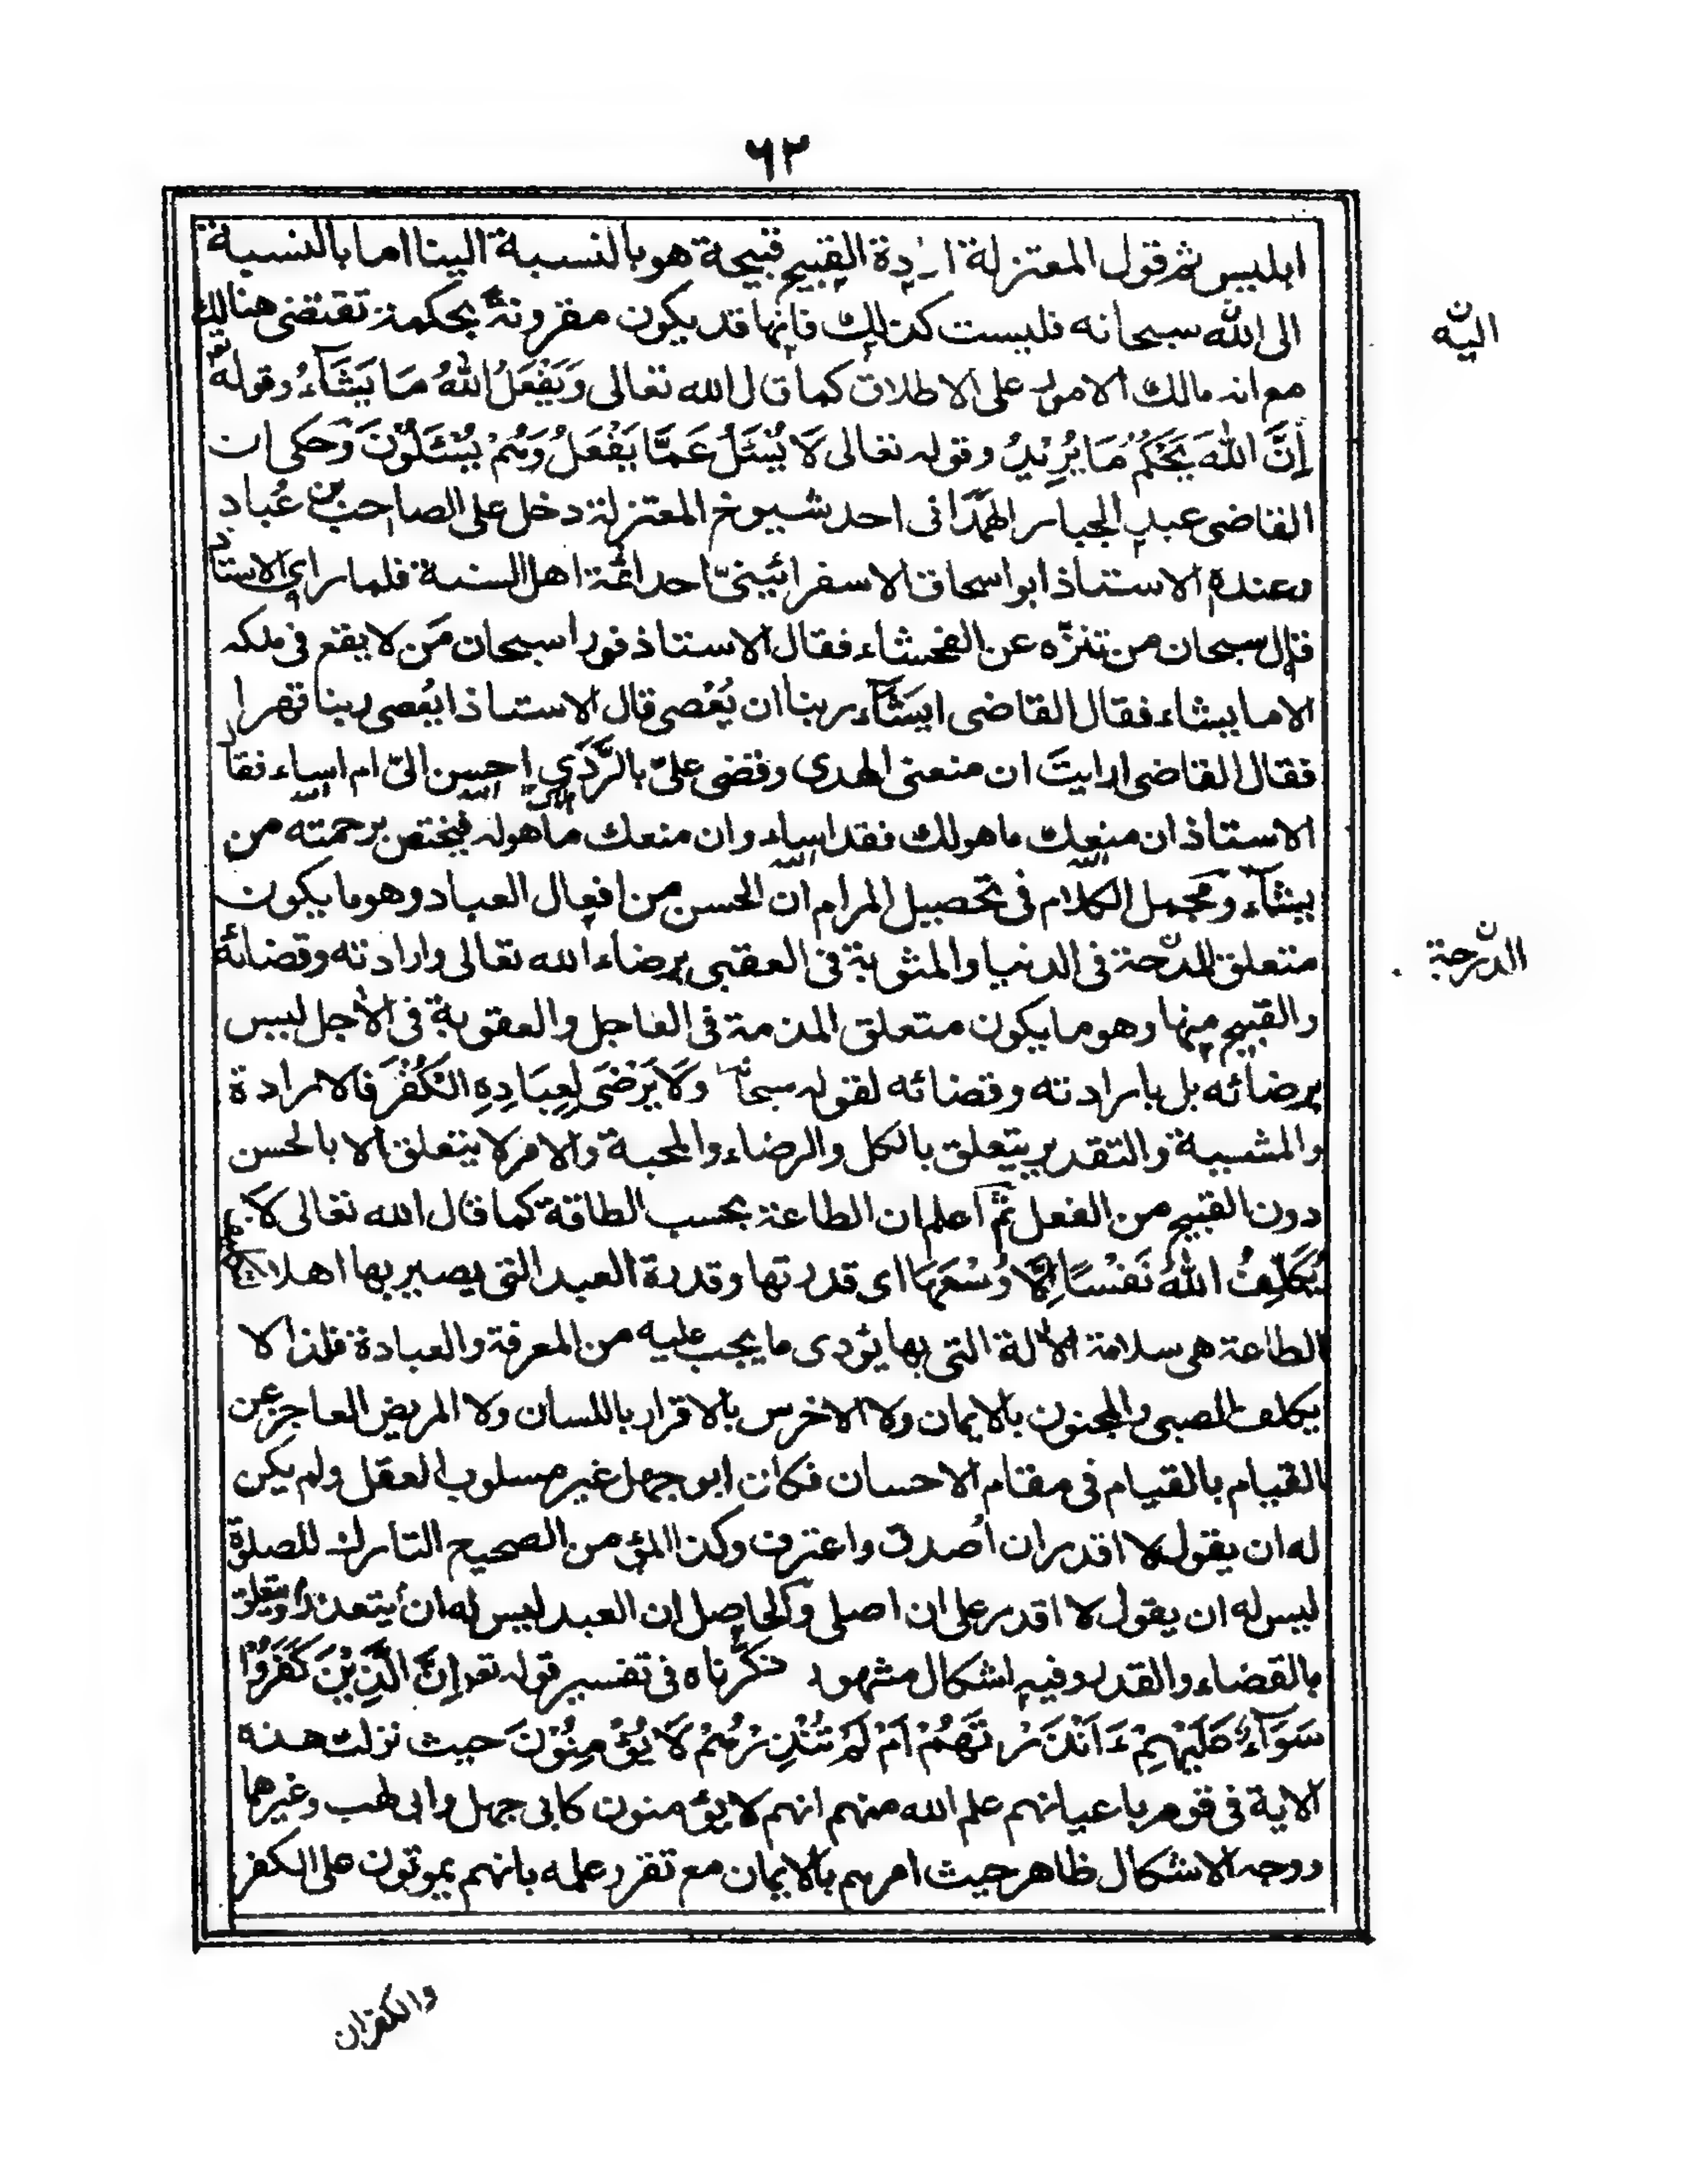 ٦٣
ابليس ثم قول المعتزلة ارادة القبيح قبيحة هو بالنسبة الينا اما بالنسبة
الى الله سبحانه فليست كذلك فانها قد يكون مقرونة بحكمة تقتضى هنالك
اليه
مع انه مالك الامور على الاطلاق كما قال الله تعالى وَيَفْعَلُ اللهُ مَا يَشَآءُ وقوله تعـ
إِنَّ اللهَ يَحْكُمُ مَا يُرِيْدُ وقوله تعالى لَا يُسْئَلُ عَمَّا يَفْعَلُ وَهُمْ يُسْئَلُوْنَ وَحكى ان
القاضى عبد الجبار الهمدانى احد شيوخ المعتزلة دخل على الصاحب بن عُباد
وعنده الاستاذ ابو اسحاق الاسفرائينىّ احد ائمة اهل السنة فلما راى الاستاذ
قال سبحان من تنزّه عن الفحشاء فقال الاستاذ فورا سبحان مَن لا يقع فى ملكه
الا ما يشاء فقال القاضى ايشَآء ربنا ان يُعْصى قال الاستاذ ايُعصى ربنا قهرا
فقال القاضى ارايتَ ان منعنى الهدى وقضى علىّ بالرَّدٰي احسن الىّ ام اساء فقال
الاستاذ ان منعك ما هو لك فقد اساء وان منعك ما هو له فيختص برحمته من
يشآء ومجمل الكلام فى تحصيل المرام ان الحسن من افعال العباد وهو ما يكون
متعلق المدحة فى الدنيا والمثوبة فى العقبى برضاء الله تعالى وارادته وقضائه
الدرجة
والقبيح منها وهو ما يكون متعلق المذمة فى العاجل والعقوبة فى الأجل ليس
برضائه بل بارادته وقضائه لقوله سبحانه وَلَا يَرْضَى لِعِبَادِهِ الْكُفْرَ فالارادة
والمشيية والتقدير يتعلق بالكل والرضاء والمحبة والامر لا يتعلق الا بالحسن
دون القبيح من الفعل ثم اعلم ان الطاعة بحسب الطاقة كما قال الله تعالى لَا
يُكَلِّفُ اللهُ نَفْسًا إِلَّا وُسْعَهَا اى قدرتها وقدرة العبد التى يصير بها اهلا لتكليف
الطاعة هى سلامة الالة التى بها يؤدى ما يجب عليه من المعرفة والعبادة فلذا لا
يكلف الصبى والمجنون بالايمان ولا الاخرس بالاقرار باللسان ولا المريض العاجز عن
القيام بالقيام فى مقام الاحسان فكان ابو جهل غير مسلوب العقل ولم يكن
له ان يقول لا اقدر ان اُصدق واعترف وكذا المؤمن الصحيح التارك للصلوة
ليس له ان يقول لا اقدر على ان اصلى والحاصل ان العبد ليس له ان يتعذر ويتعلق
بالقضاء والقدر وفيه اشكال مشهور ذكرناه فى تفسير قوله تعـ إِنَّ الَّذِيْنَ كَفَرُوْا
سَوَآءٌ عَلَيْهِمْ ءَاَنْذَرْتَهُمْ اَمْ لَمْ تُنْذِرْهُمْ لَا يُؤْمِنُوْنَ حيث نزلت هذه
الاية فى قوم باعيانهم علم الله منهم انهم لا يؤمنون كابى جهل وابى لهب وغيرهما
ووجه الاشكال ظاهر حيث امرهم بالايمان مع تقرر علمه بانهم يموتون على الكفر
والكفران